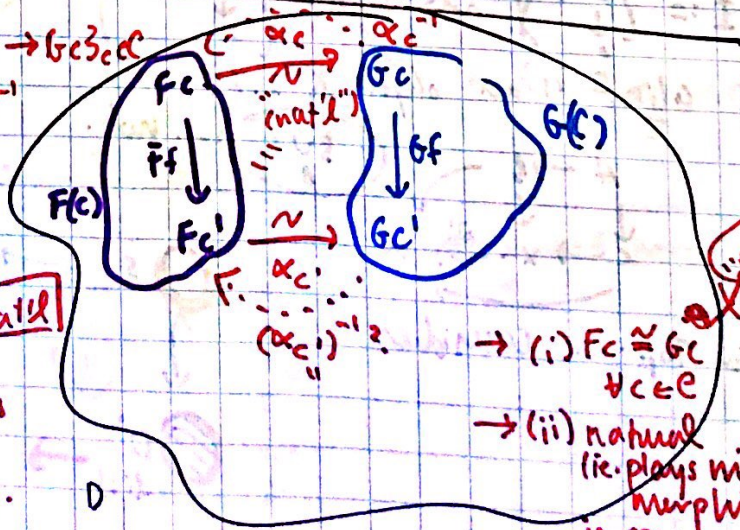 → Gc}c∈C
αc αc⁻¹
Fc ~ Gc
"(nat'l")
Ff Gf G(C)
F(C)
Fc' ~ Gc'
αc'
(αc')⁻¹ ?
→ (i) Fc ≅ Gc
∀c∈C
→ (ii) natural
(ie. plays
D